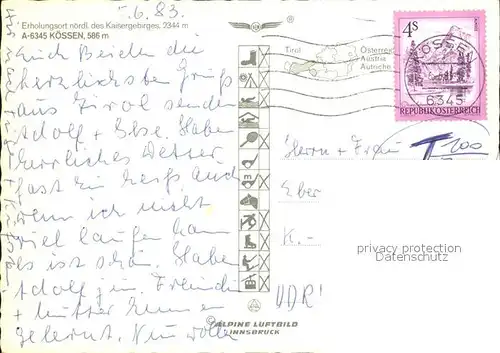 5.6.83.
Erholungsort nördl. des Kaisergebirges, 2344 m
A-6345 KÖSSEN, 586 m
Euch Beiden die
herzlichsten Grüße
aus Tirol senden
Adolf + Else. Habe
herrliches Wetter
fast zu heiß. Auch
wenn ich nicht
viel laufen kann
es ist schön. Habe
Adolf
+ Mutter kennen
gelernt. Nun
Tirol
Österreich
Austria
Autriche
4S
KÖSSEN
6345
REPUBLIK ÖSTERREICH
T 200
Herrn + Frau
K.-
DDR!
privacy protection
Datenschutz
ALPINE LUFTBILD
INNSBRUCK